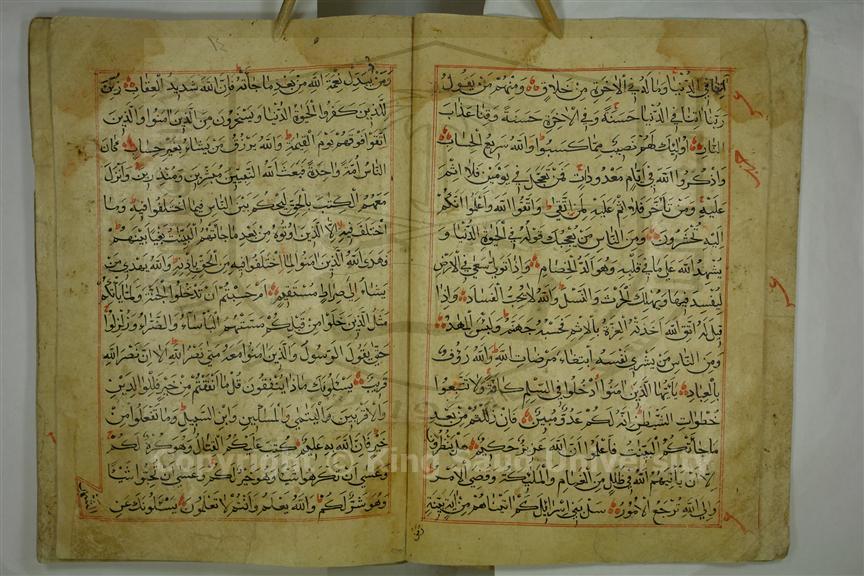 اتنا في الدنيا وماله في الاخرة من خلاق ومنهم من يقول
ربنا اتنا في الدنيا حسنة وفي الاخرة حسنة وقنا عذاب
النار اولئك لهم نصيب مما كسبوا والله سريع الحساب
واذكروا الله في ايام معدودات فمن تعجل في يومين فلا اثم
عليه ومن تاخر فلا اثم عليه لمن اتقى واتقوا الله واعلموا انكم
اليه تحشرون ومن الناس من يعجبك قوله في الحيوة الدنيا و
يشهد الله على ما في قلبه وهو الد الخصام واذا تولى سعى في الارض
ليفسد فيها ويهلك الحرث والنسل والله لا يحب الفساد واذا
قيل له اتق الله اخذته العزة بالاثم فحسبه جهنم ولبئس المهاد
ومن الناس من يشري نفسه ابتغاء مرضات الله والله رؤف
بالعباد يايها الذين امنوا ادخلوا في السلم كافة ولا تتبعوا
خطوات الشيطان انه لكم عدو مبين فان زللتم من بعد
ما جاءتكم البينت فاعلموا ان الله عزيز حكيم هل ينظرون
الا ان ياتيهم الله في ظلل من الغمام والملئكة وقضي الامر
والى الله ترجع الامور سل بني اسرائيل كم اتيناهم من اية بينة
ومن
ومن يبدل نعمة الله من بعد ما جاءته فان الله شديد العقاب زين
للذين كفروا الحيوة الدنيا ويسخرون من الذين امنوا والذين
اتقوا فوقهم يوم القيمة والله يرزق من يشاء بغير حساب كان
الناس امة واحدة فبعث الله النبيين مبشرين ومنذرين وانزل
معهم الكتب بالحق ليحكم بين الناس فيما اختلفوا فيه وما
اختلف فيه الا الذين اوتوه من بعد ما جاءتهم البينت بغيا بينهم
فهدى الله الذين امنوا لما اختلفوا فيه من الحق باذنه والله يهدي من
يشاء الى صراط مستقيم ام حسبتم ان تدخلوا الجنة ولما ياتكم
مثل الذين خلوا من قبلكم مستهم الباساء والضراء وزلزلوا
حتى يقول الرسول والذين امنوا معه متى نصر الله الا ان نصر الله
قريب يسئلونك ماذا ينفقون قل ما انفقتم من خير فللوالدين
والاقربين واليتمى والمسكين وابن السبيل وما تفعلوا من
خير فان الله به عليم كتب عليكم القتال وهو كره لكم
وعسى ان تكرهوا شيئا وهو خير لكم وعسى ان تحبوا شيئا
وهو شر لكم والله يعلم وانتم لا تعلمون يسئلونك عن
Copyright © King Saud University